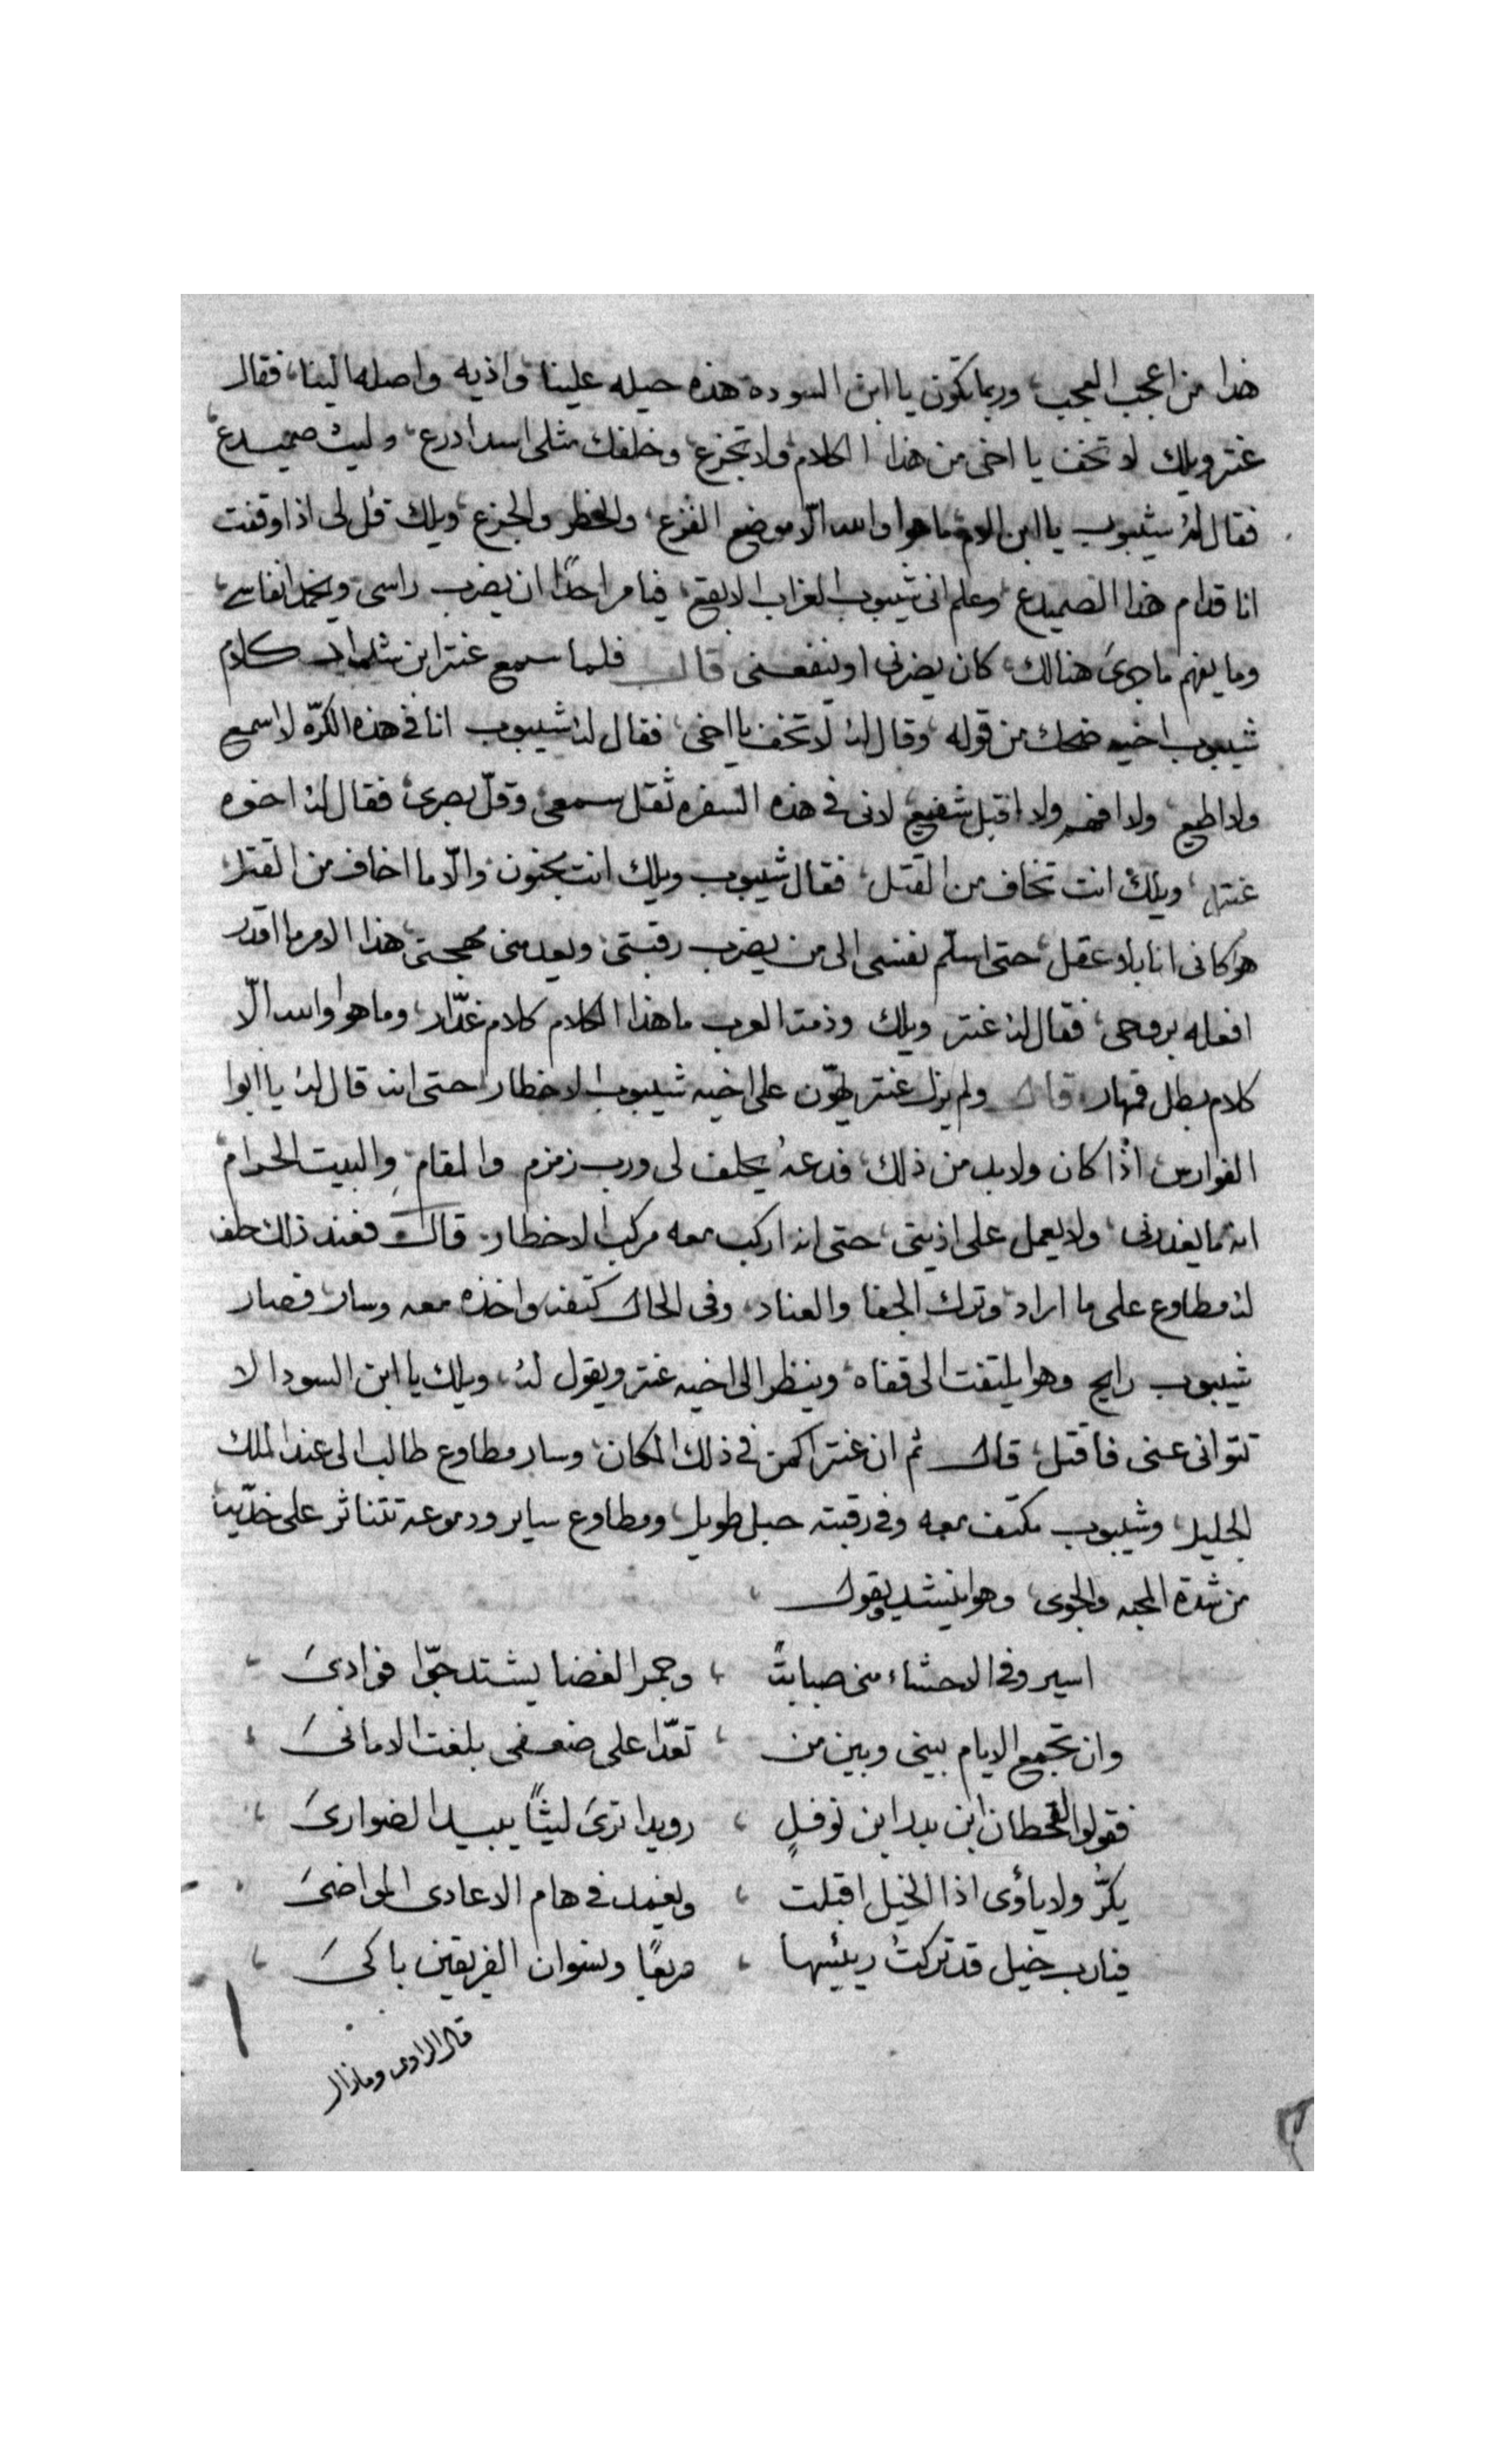 هذا من اعجب العجب، وربما تكون يا ابن السوده هذه حيله علينا، واذيه واصله الينا، فقال
عنتر ويلك لا تخف يا اخى من هذا الكلام، ولا تجزع، وخلفك مثلى اسد ادرع، وليث صميدع،
فقال لهُ شيبوب يا ابن الام، ما هوا والله الّا موضع الفزع، والخطر والجزع، ويلك قُل لى اذا وقفت
انا قدام هذا الصميدع، وعلم انى شيبوب الغراب الابقع، فيامر احدًا ان يضرب راسى، ويخمد انفاسى،
وما يفهم ما جرىَ هنالك، كان يضرنى او ينفعنى قال فلما سمع عنتر ابن شداد كلام
شيبوب اخيه ضحك من قوله، وقال لهُ لا تخف يا اخى، فقال لهُ شيبوب انا فى هذه الكرّه لا اسمع
ولا اطيع، ولا افهم ولا اقبل شفيع، لانى فى هذه السفره ثقل سمعى، وقلّ بصرى، فقال لهُ اخوه
عنتر، ويلكَ انت تخاف من القتل، فقال شيبوب ويلك انت مجنون، والّا ما اخاف من القتل،
هوا كانى انا بلا عقل، حتى اسلّم نفسى الى من يضرب رقبتى، ويعدمنى مهجتى، هذا الامر ما اقدر
افعله بروحى، فقال لهُ عنتر ويلك وذمة العرب ما هذا الكلام كلام غدّار، وما هوا والله الّا
كلام بطل قهار، قال ولم يزل عنتر يهوّن على اخيه شيبوب الاخطار، حتى انه قال لهُ يا ابوا
الفوارس، اذًا كان ولا بد من ذلك، فدعهُ يحلف لى ورب زمزم والمقام، والبيت الحرام،
انه ما يغدرنى، ولا يعمل على اذيتى، حتى انه اركب معه مركب الاخطار، قال فعند ذلك حلف
لهُ مطاوع على ما اراد، وترك الجفا والعناد، وفى الحال كتفه واخذه معه وسار، فصار
شيبوب رايح وهوا يلتفت الى قفاه، وينظر الى اخيه عنتر ويقول لهُ، ويلك يا ابن السودا لا
تتوانى عنى فاقتل، قال ثم ان عنتر اكمن فى ذلك المكان، وسار مطاوع طالب الى عند الملك
الجليل، وشيبوب مكتف معه وفى رقبته حبل طويل، ومطاوع ساير ودموعه تتناثر على خدّيه،
من شدة المحبه والجوى، وهوا ينشد ويقول
اسير وفى الاحشاء منى صبابتًا ، وجمر الغضا يشتد جوّا فوادىَ
وان تجمع الايام بينى وبين من ، تعدّا على ضعفى بلغت الامانىَ
فقولوا لقحطان ابن بدر ابن نوفلٍ ، رويدا ترىَ ليثًا يبيد الضوارىَ
يكرُّ ولا ياؤى اذا الخيل اقبلت ، ويغمد فى هام الاعادى المواضىَ
فيارب خيل قد تركتُ رئيسها ، صريعًا ونسوان الفريقين باكىَ
قال الراوى وما زال